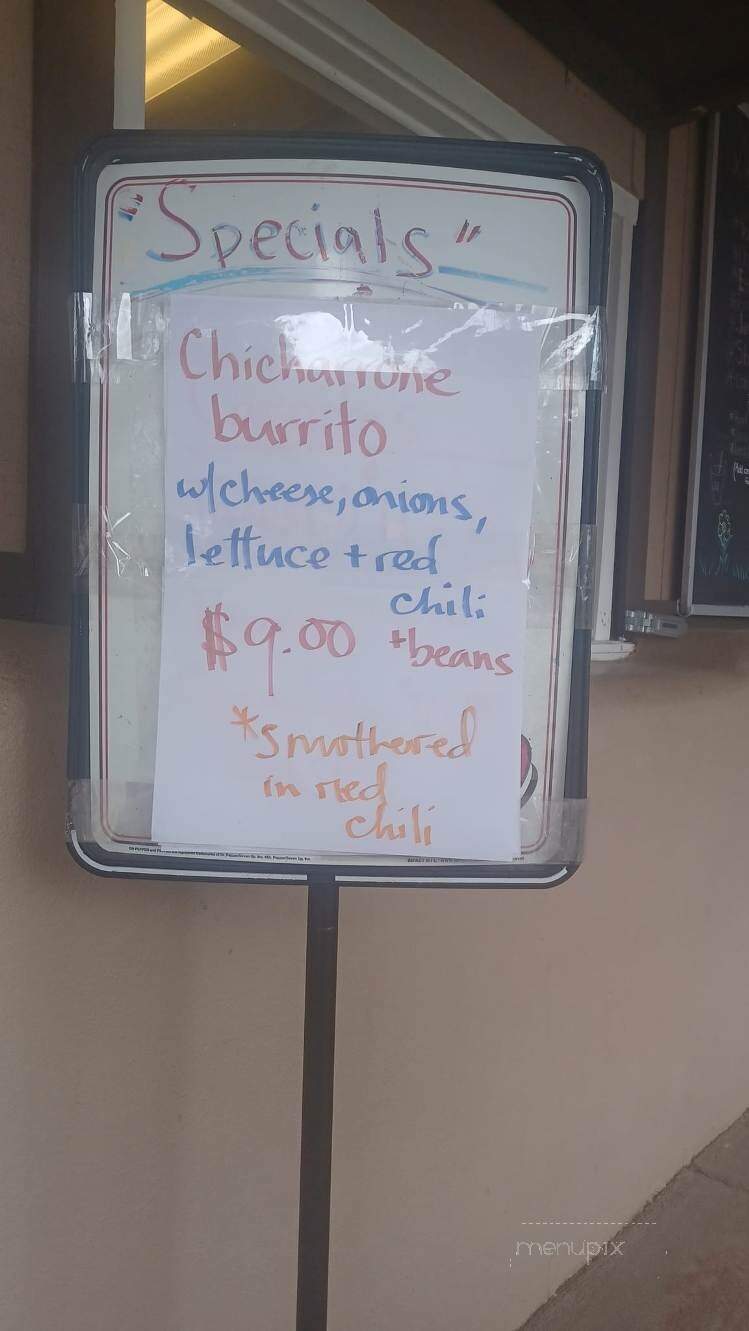 "Specials"
Chicharrone
burrito
w/cheese, onions,
lettuce + red
chili
$9.00 +beans
*smothered
in red
chili
menupix